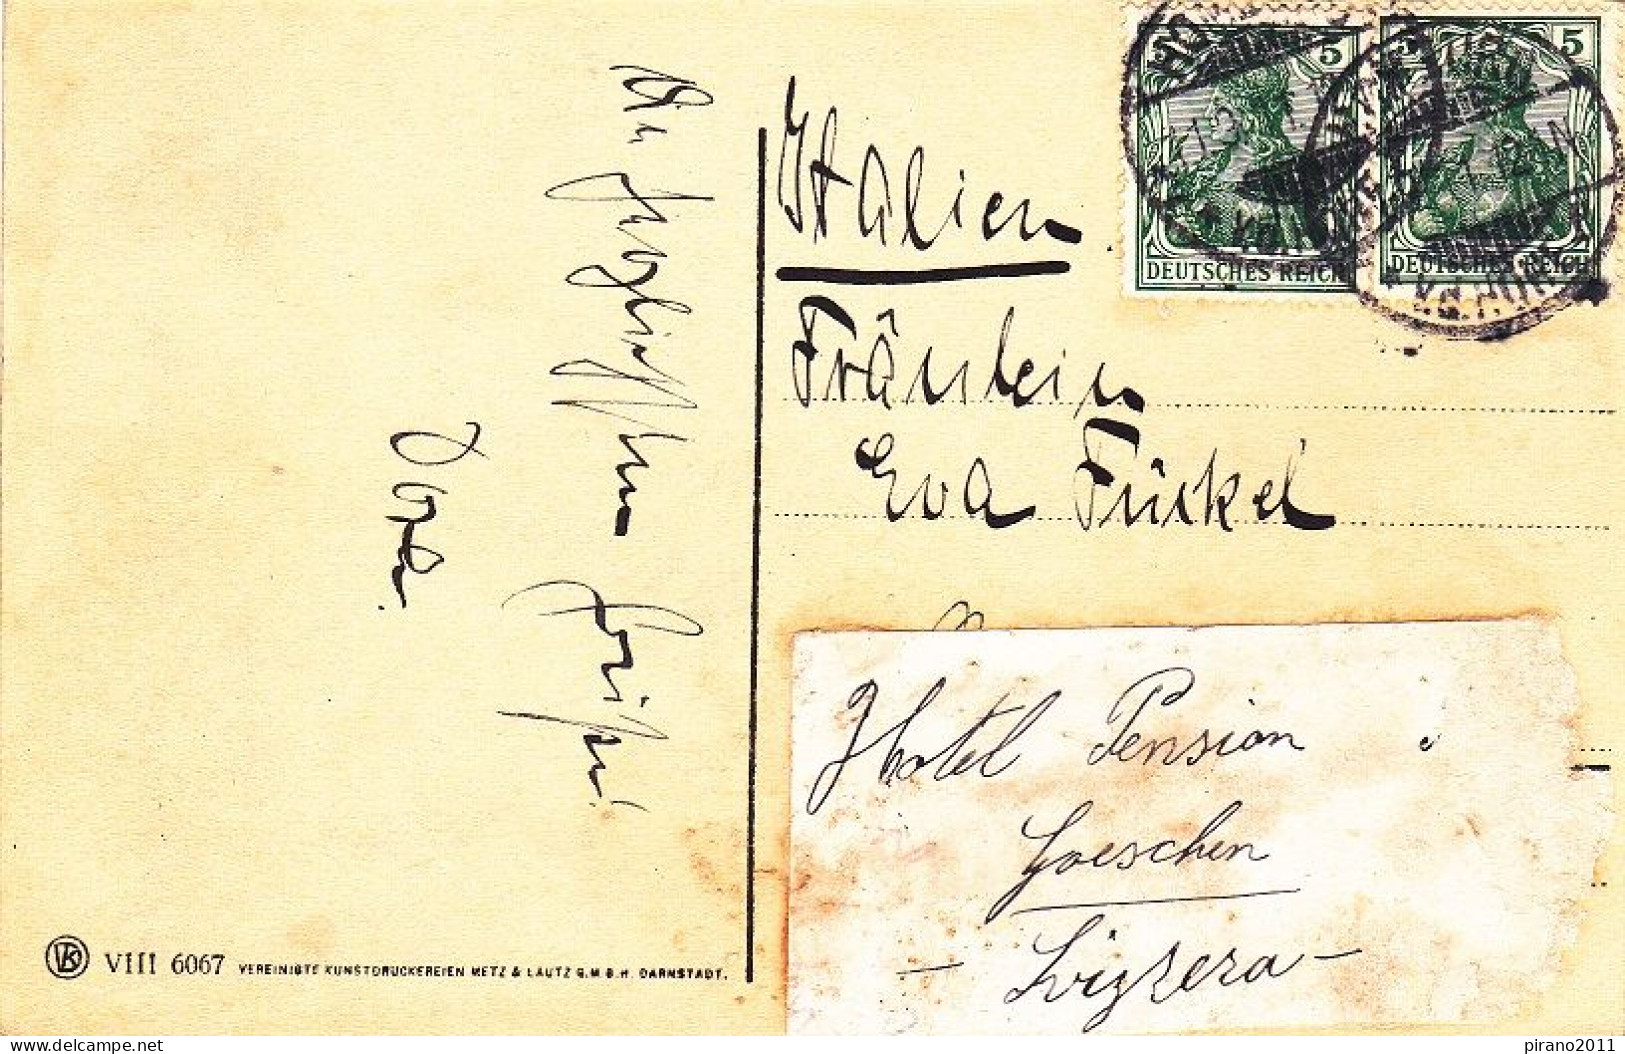 Italien
Fräulein
Eva Fückel
Hotel Pension
Goeschen
- Svizzera -
An herzlichsten Grüßen
Dora.
5
5
DEUTSCHES REICH
DEUTSCHES REICH
VK VIII 6067 VEREINIGTE KUNSTDRUCKEREIEN METZ & LAUTZ G.M.B.H. DARMSTADT.
delcampe.net
pirano2011